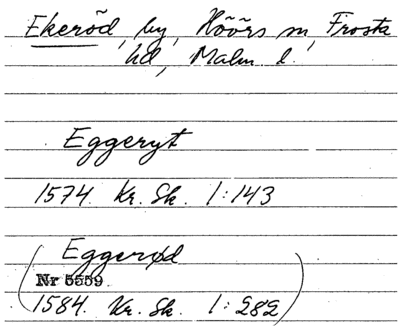 Ekeröd, by, Höörs sn, Frosta
hd, Malm. l.
Eggeryt
1574. Kr. Sk. 1:143
(Eggerød
Nr 5559.
1584. Kr. Sk. 1:282)